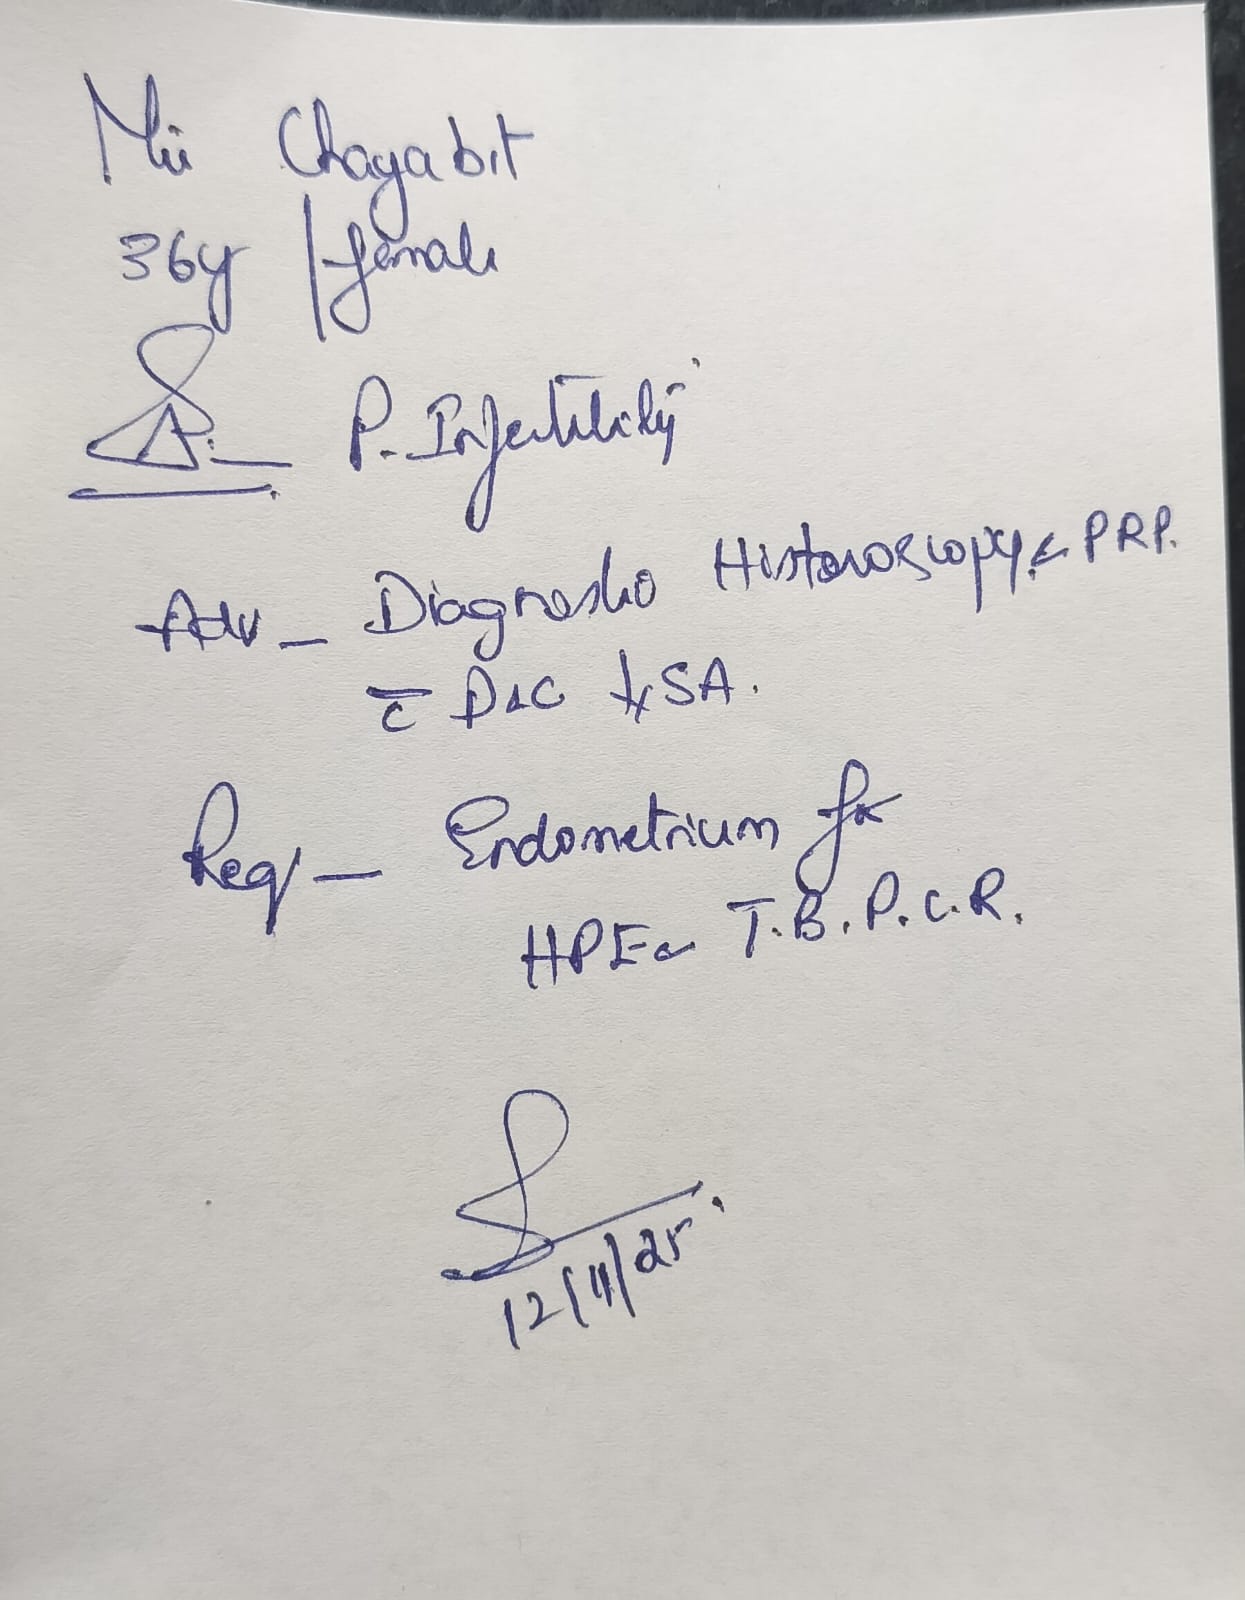 Mrs Chayabit
36y / female
Δ. — P. Infertility
Adv — Diagnostic Histeroscopy & PRP.
c̄ D&C ↓ SA.
Req — Endometrium for
HPE & T.B. P.C.R.
12/11/25